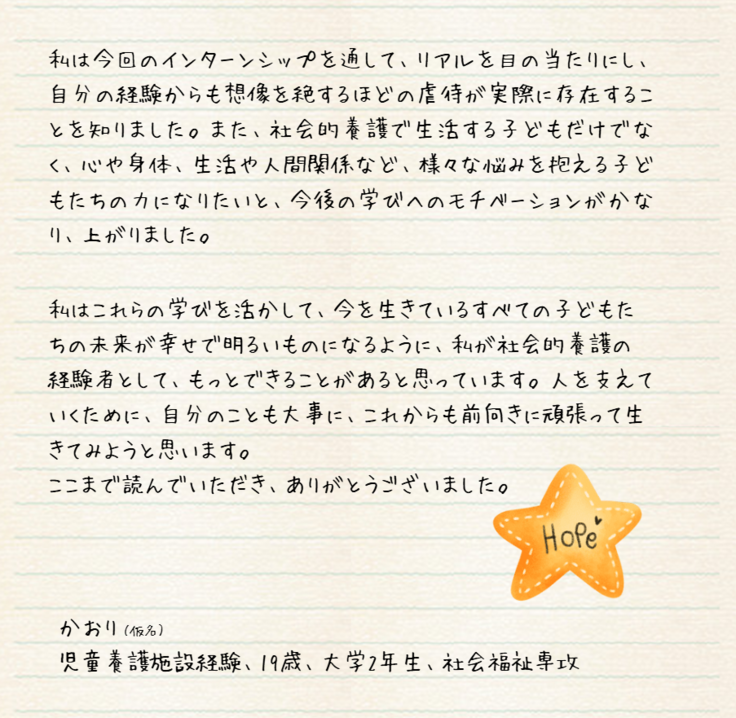 私は今回のインターンシップを通して、リアルを目の当たりにし、
自分の経験からも想像を絶するほどの虐待が実際に存在するこ
とを知りました。また、社会的養護で生活する子どもだけでな
く、心や身体、生活や人間関係など、様々な悩みを抱える子ど
もたちの力になりたいと、今後の学びへのモチベーションがかな
り、上がりました。
私はこれらの学びを活かして、今を生きているすべての子どもた
ちの未来が幸せで明るいものになるように、私が社会的養護の
経験者として、もっとできることがあると思っています。人を支えて
いくために、自分のことも大事に、これからも前向きに頑張って生
きてみようと思います。
ここまで読んでいただき、ありがとうございました。
Hope
かおり(仮名)
児童養護施設経験、19歳、大学2年生、社会福祉専攻